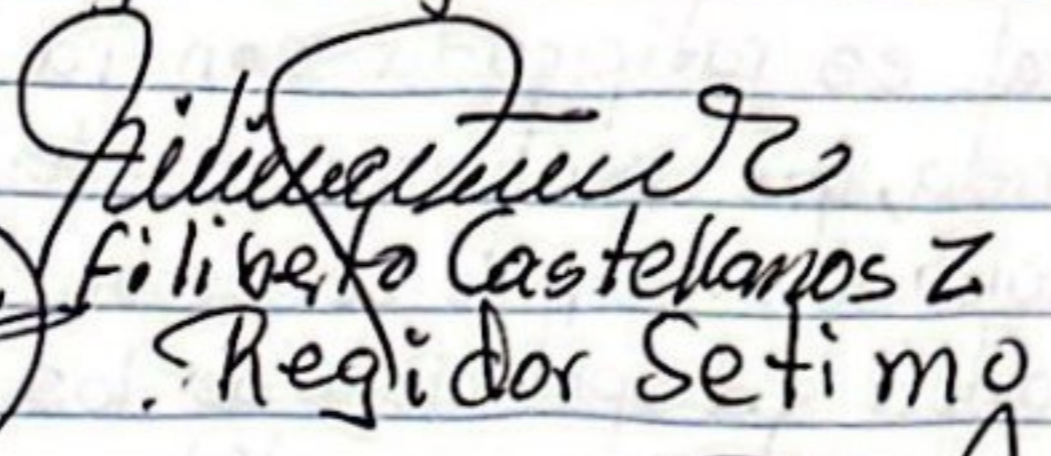 Filiberto Castellanos Z
Regidor Setimo